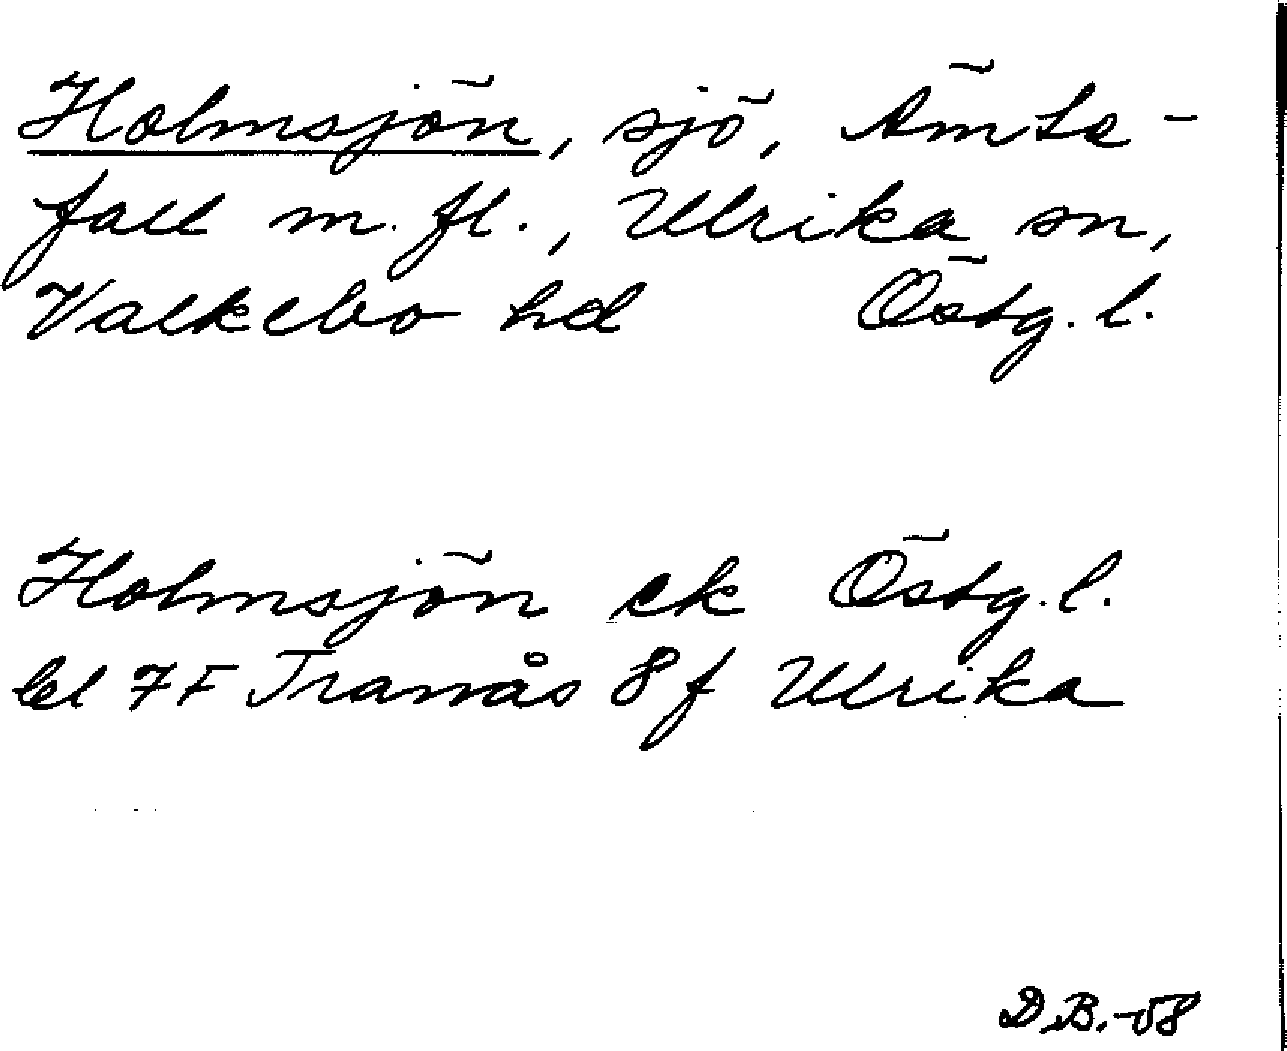 Holmsjön, sjö, Ämte-
fall m.fl., Ulrika sn,
Valkebo hd Östg. l.
Holmsjön ek Östg. l.
bl 7F Tranås 8f Ulrika
D.B.-58